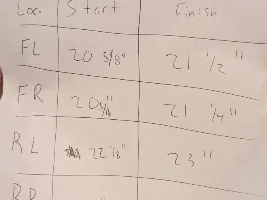 Loc. Start Finish
FL 20 5/8" 21 1/2"
FR 20 5/16" 21 1/4"
RL 22 1/8" 23"
RR